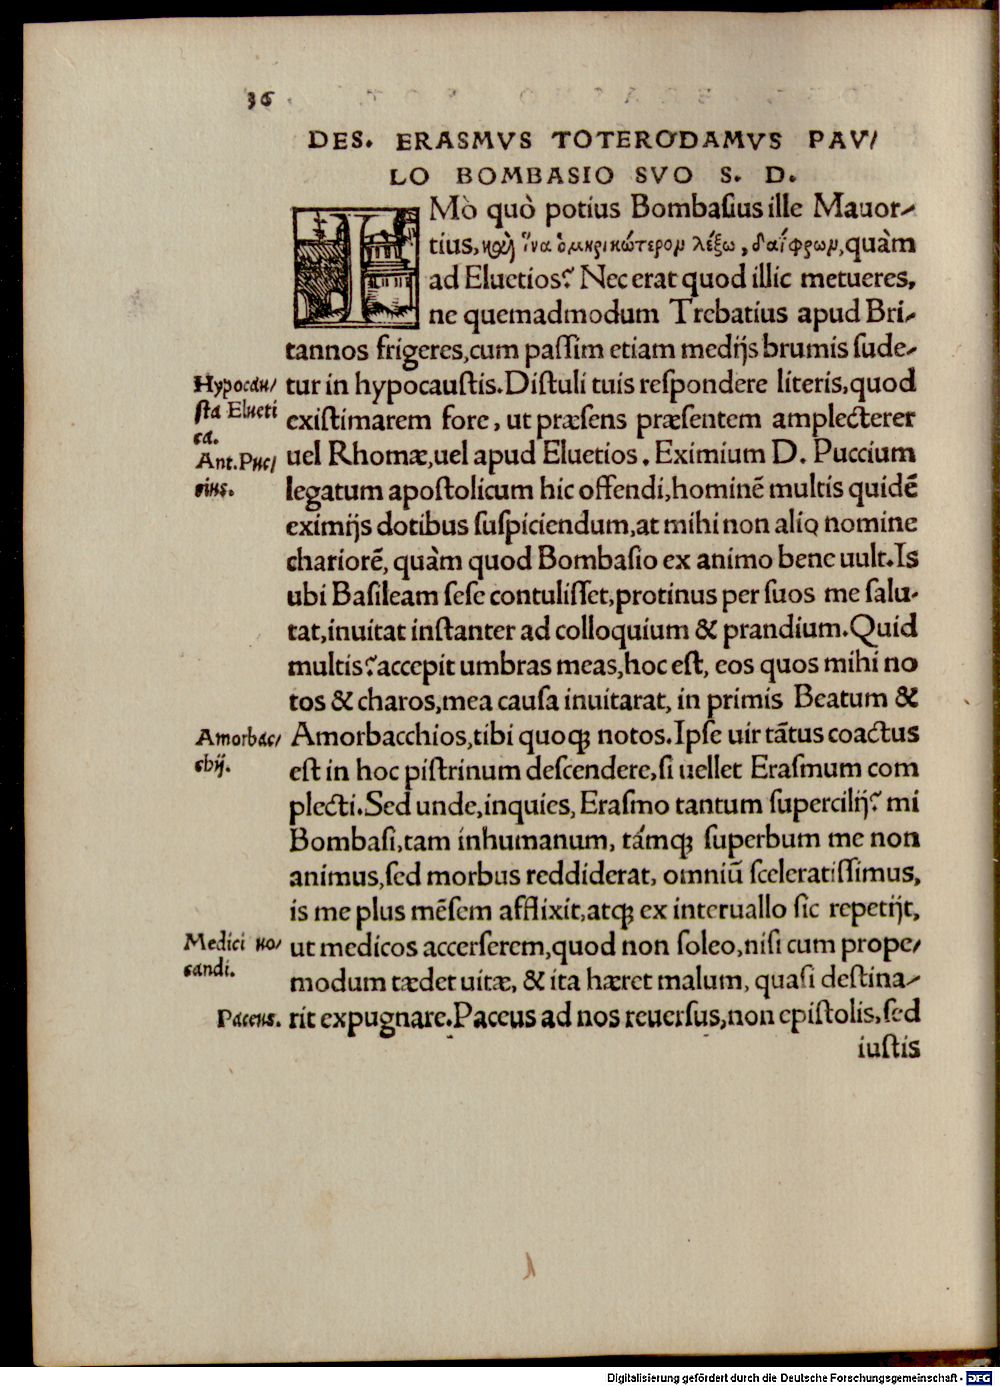 36
DES. ERASMVS TOTERODAMVS PAV/
LO BOMBASIO SVO S. D.
IMò quò potius Bombasius ille Mauor-
tius, καὶ ἵνα ὁμηρικώτερον λέξω, δαΐφρων, quàm
ad Eluetios? Nec erat quod illic metueres,
ne quemadmodum Trebatius apud Bri-
tannos frigeres, cum paſſim etiam medijs brumis ſude-
Hypocau/
tur in hypocauſtis. Diſtuli tuis reſpondere literis, quod
ſta Elueti
exiſtimarem fore, ut præſens præſentem amplecterer
ca.
Ant. Puc/
uel Rhomæ, uel apud Eluetios. Eximium D. Puccium
cius.
legatum apoſtolicum hic offendi, hominẽ multis quidẽ
eximijs dotibus ſuſpiciendum, at mihi non alio nomine
chariorẽ, quàm quod Bombaſio ex animo bene uult. Is
ubi Baſileam ſeſe contuliſſet, protinus per ſuos me ſalu-
tat, inuitat inſtanter ad colloquium & prandium. Quid
multis? accepit umbras meas, hoc eſt, eos quos mihi no
tos & charos, mea cauſa inuitarat, in primis Beatum &
Amorbac/
Amorbacchios, tibi quoqꝫ notos. Ipſe uir tãtus coactus
chij.
eſt in hoc piſtrinum deſcendere, ſi uellet Eraſmum com
plecti. Sed unde, inquies, Eraſmo tantum ſupercilij? mi
Bombaſi, tam inhumanum, támqꝫ ſuperbum me non
animus, ſed morbus reddiderat, omniũ ſceleratiſſimus,
is me plus mẽſem afflixit, atqꝫ ex interuallo ſic repetijt,
Medici uo/
ut medicos accerſerem, quod non ſoleo, niſi cum prope/
candi.
modum tædet uitæ, & ita hæret malum, quaſi deſtina-
Paceus.
rit expugnare. Paceus ad nos reuerſus, non epiſtolis, ſed
iuſtis
Digitalisierung gefördert durch die Deutsche Forschungsgemeinschaft - DFG